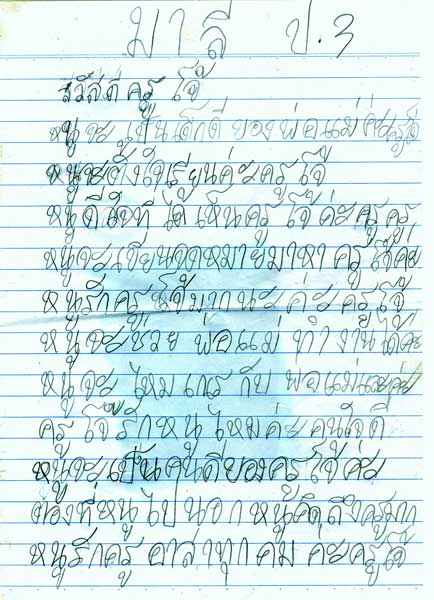 มาลี ป.3
สวัสดี ครู โจ้
หนูจะเป็นเด็กดี ของพ่อแม่ค่ะครูโจ้
หนูจะตั้งใจเรียนค่ะครูโจ้
หนูดีใจที่ได้เห็นครูโจ้ค่ะครู
หนูจะเขียนจดหมายมาหา ครูโจ้ค่ะ
หนูรักครูโจ้มากนะค่ะครูโจ้
หนูจะช่วย พ่อแม่ ทำงานได้ค่ะ
หนูจะ ไหมเกเร กับ พ่อแม่
ครูโจ้รักหนูไหมค่ะ
หนูจะเป็นคนดีของครูโจ้ค่ะ
ตอนที่หนูไปนอก หนูคิดถึงครูมาก
หนูรักครู อาสาทุกคม คะครูโจ้